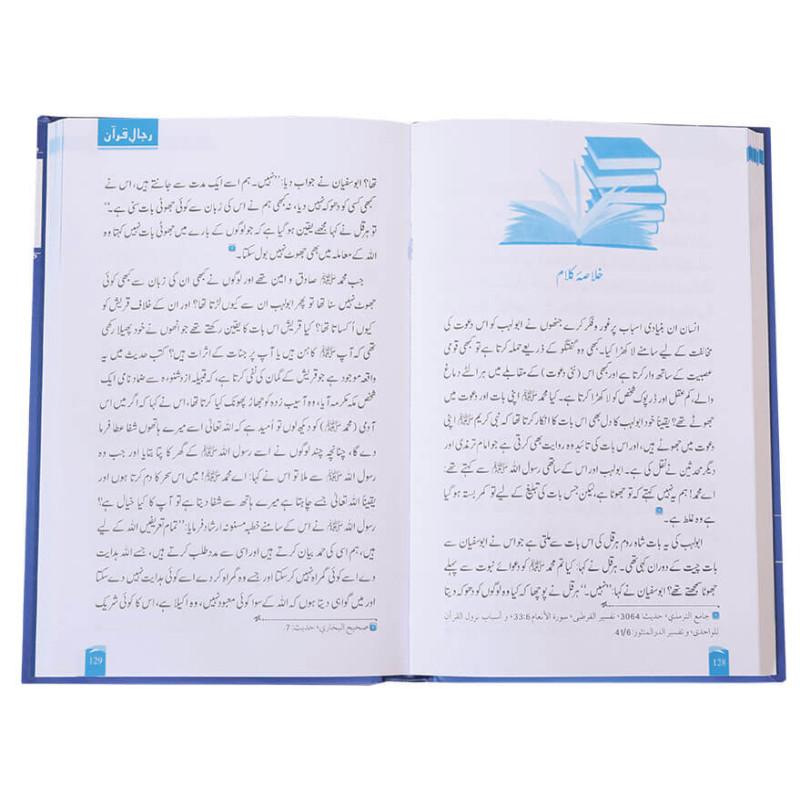 خلاصۂ کلام
انسان ان بنیادی اسباب پر غور و فکر کرے جنھوں نے ابولہب کو اس دعوت کی
مخالفت کے لیے سامنے لا کھڑا کیا۔ کبھی وہ گفتگو کے ذریعے حملہ کرتا ہے تو کبھی قومی
عصبیت کے ساتھ وار کرتا ہے اور کبھی اس (نئی دعوت) کے مقابلے میں ہر الٹے دماغ
والے، کم عقل اور ڈرپوک شخص کو لا کھڑا کرتا ہے۔ کیا محمد ﷺ اپنی بات اور دعوت میں
جھوٹے تھے؟ یقیناً خود ابولہب کا دل بھی اس بات کا انکار کرتا تھا کہ نبی کریم ﷺ اپنی
دعوت میں جھوٹے ہیں، اور اس بات کی تائید وہ روایت بھی کرتی ہے جو امام ترمذی اور
دیگر محدثین نے نقل کی ہے۔ ابولہب اور اس کے ساتھی رسول اللہ ﷺ سے کہتے تھے:
اے محمد! ہم یہ نہیں کہتے کہ تو جھوٹا ہے، لیکن جس بات کی تبلیغ کے لیے تو کمر بستہ ہو گیا
ہے وہ غلط ہے۔
ابولہب کی یہ بات شاہ روم ہرقل کی اس بات سے ملتی ہے جو اس نے ابوسفیان سے
بات چیت کے دوران کہی تھی۔ ہرقل نے کہا: کیا تم محمد ﷺ کو دعوائے نبوت سے پہلے
جھوٹا سمجھتے تھے؟ ابوسفیان نے کہا: ”نہیں۔“ ہرقل نے پوچھا کہ کیا وہ لوگوں کو دھوکہ دیتا
جامع الترمذي، حديث: 3064 تفسير القرطبي، سورة الأنعام 33:6 و أسباب نزول القرآن
للواحدي، و تفسير الدرالمنثور: 41/6.
128
رجالِ قرآن
تھا؟ ابوسفیان نے جواب دیا: ”نہیں۔ ہم اسے ایک مدت سے جانتے ہیں، اس نے
کبھی کسی کو دھوکہ نہیں دیا، نہ کبھی ہم نے اس کی زبان سے کوئی جھوٹی بات سنی ہے۔“
تو ہرقل نے کہا: مجھے یقین ہو گیا ہے کہ جو لوگوں کے بارے میں جھوٹی بات نہیں کہتا وہ
اللہ کے معاملہ میں بھی جھوٹ نہیں بول سکتا۔
جب محمد ﷺ صادق و امین تھے اور لوگوں نے کبھی ان کی زبان سے کبھی کوئی
جھوٹ نہیں سنا تھا تو پھر ابولہب ان سے کیوں لڑتا تھا؟ اور ان کے خلاف قریش کو
کیوں اُکساتا تھا؟ کیا قریش اس بات کا یقین رکھتے تھے جو انھوں نے خود پھیلا رکھی
تھی کہ آپ ﷺ کاہن ہیں یا آپ پر جنات کے اثرات ہیں؟ کتب حدیث میں یہ
واقعہ موجود ہے جو قریش کے گمان کی نفی کرتا ہے، کہ قبیلہ ازدشنوءہ سے ضماد نامی ایک
شخص مکہ مکرمہ آیا، وہ آسیب زدہ کو جھاڑ پھونک کیا کرتا تھا، اس نے کہا کہ اگر میں اس
آدمی (محمد ﷺ) کو دیکھ لوں تو اُمید ہے کہ اللہ تعالیٰ اسے میرے ہاتھوں شفا عطا فرما
دے گا، چنانچہ چند لوگوں نے اسے رسول اللہ ﷺ کے گھر کا پتا بتایا اور جب وہ
رسول اللہ ﷺ سے ملا تو اس نے کہا: اے محمد ﷺ! میں اس سحر کا دم کرتا ہوں اور
یقیناً اللہ تعالیٰ جسے چاہتا ہے میرے ہاتھ سے شفا دیتا ہے تو آپ کا کیا خیال ہے؟
رسول اللہ ﷺ نے اس کے سامنے خطبہ مسنونہ ارشاد فرمایا: ”تمام تعریفیں اللہ کے لیے
ہیں، ہم اسی کی حمد بیان کرتے ہیں اور اسی سے مدد طلب کرتے ہیں، جسے اللہ ہدایت
دے اسے کوئی گمراہ نہیں کر سکتا اور جسے وہ گمراہ کر دے اسے کوئی ہدایت نہیں دے سکتا
اور میں گواہی دیتا ہوں کہ اللہ کے سوا کوئی معبود نہیں، وہ اکیلا ہے، اس کا کوئی شریک
صحيح البخاري، حديث: 7.
129